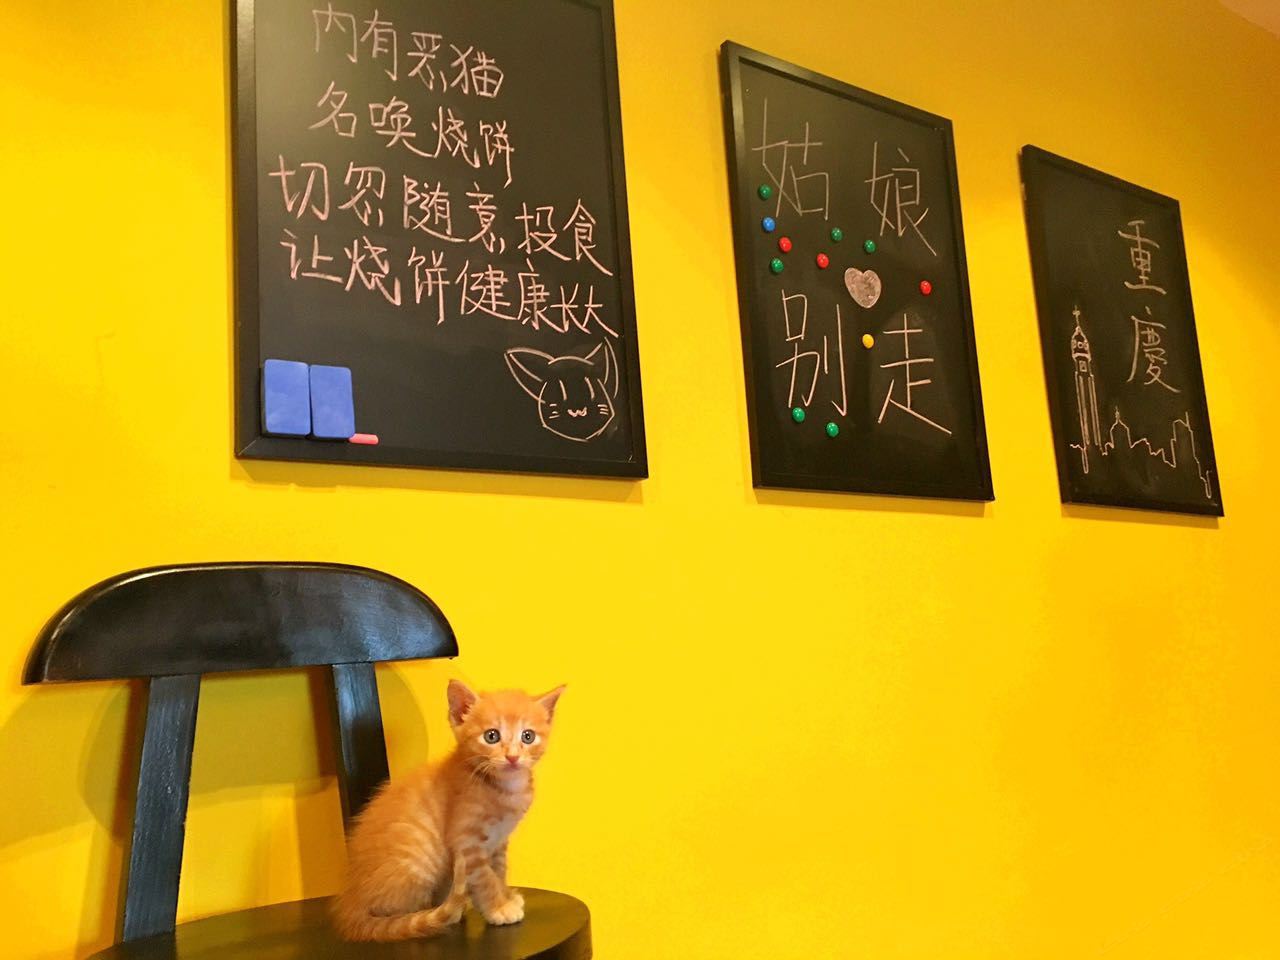 内有恶猫
名唤烧饼
切忽随意投食
让烧饼健康长大
姑娘
别走
重慶